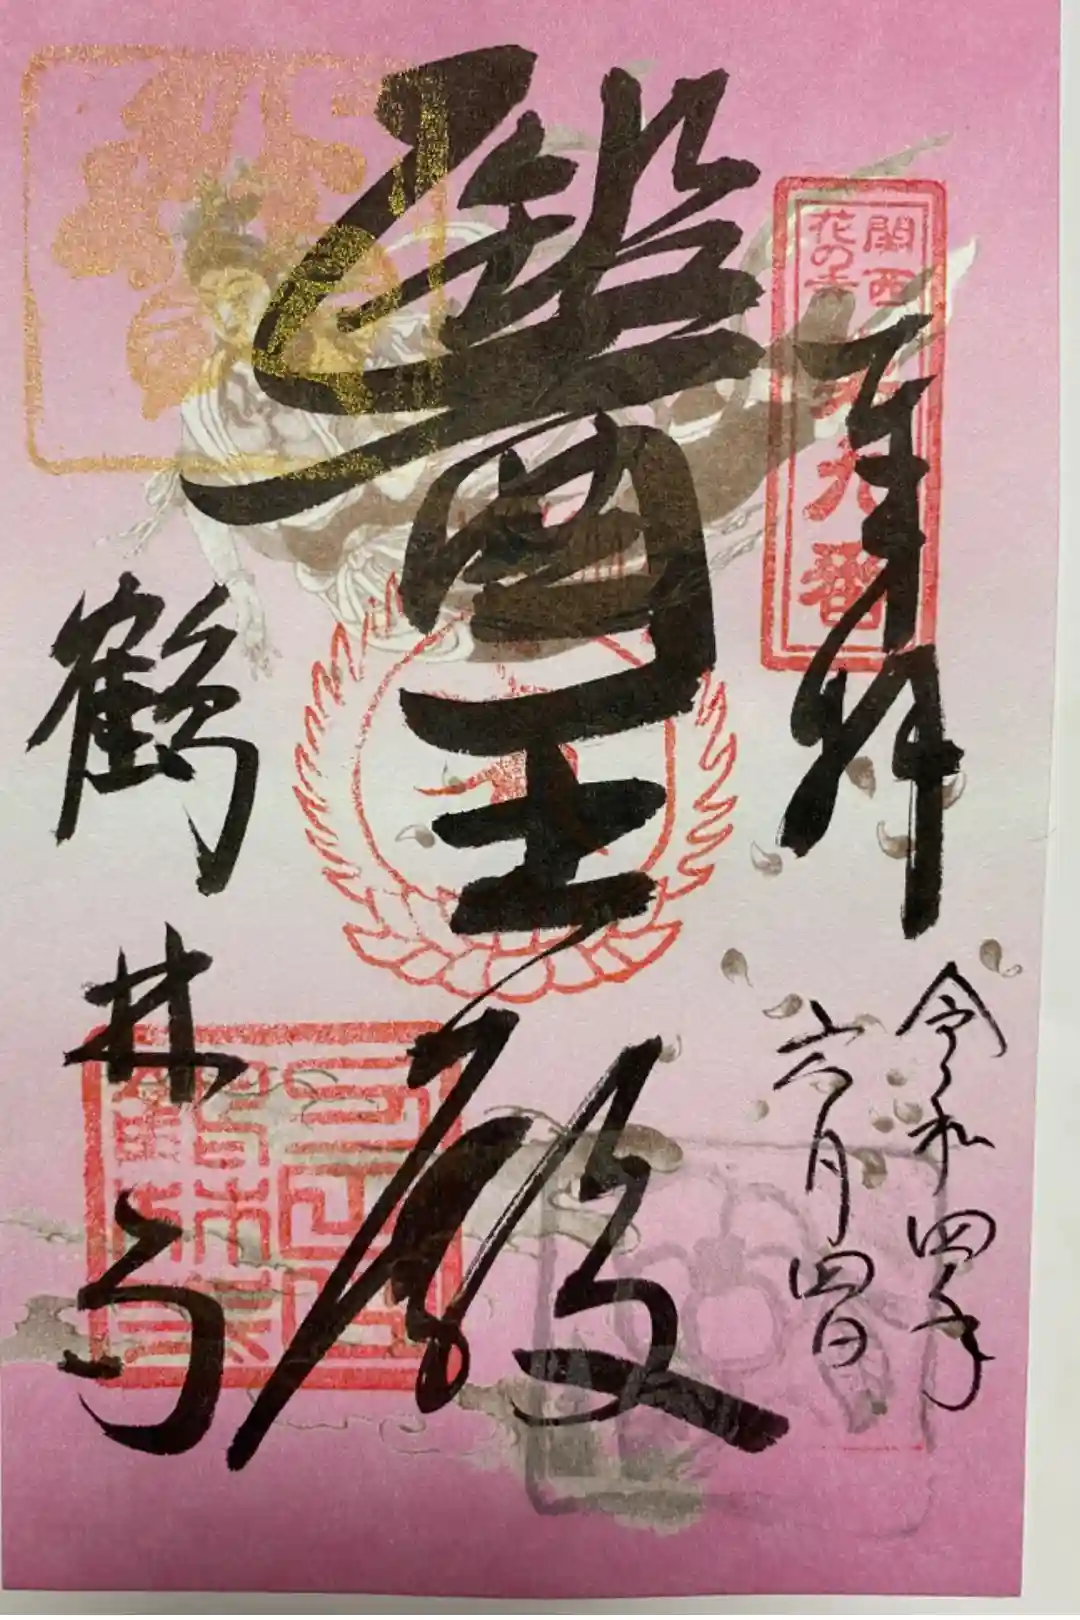 関西
花の寺
第九番
奉拝
令和四年
六月四日
醫王殿
鶴林寺